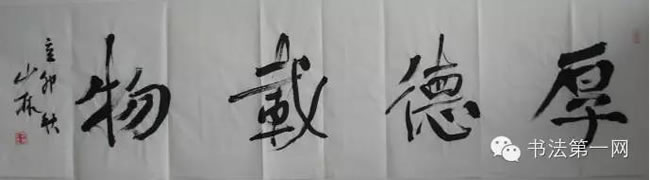 厚德載物
辛卯秋
山林
书法第一网